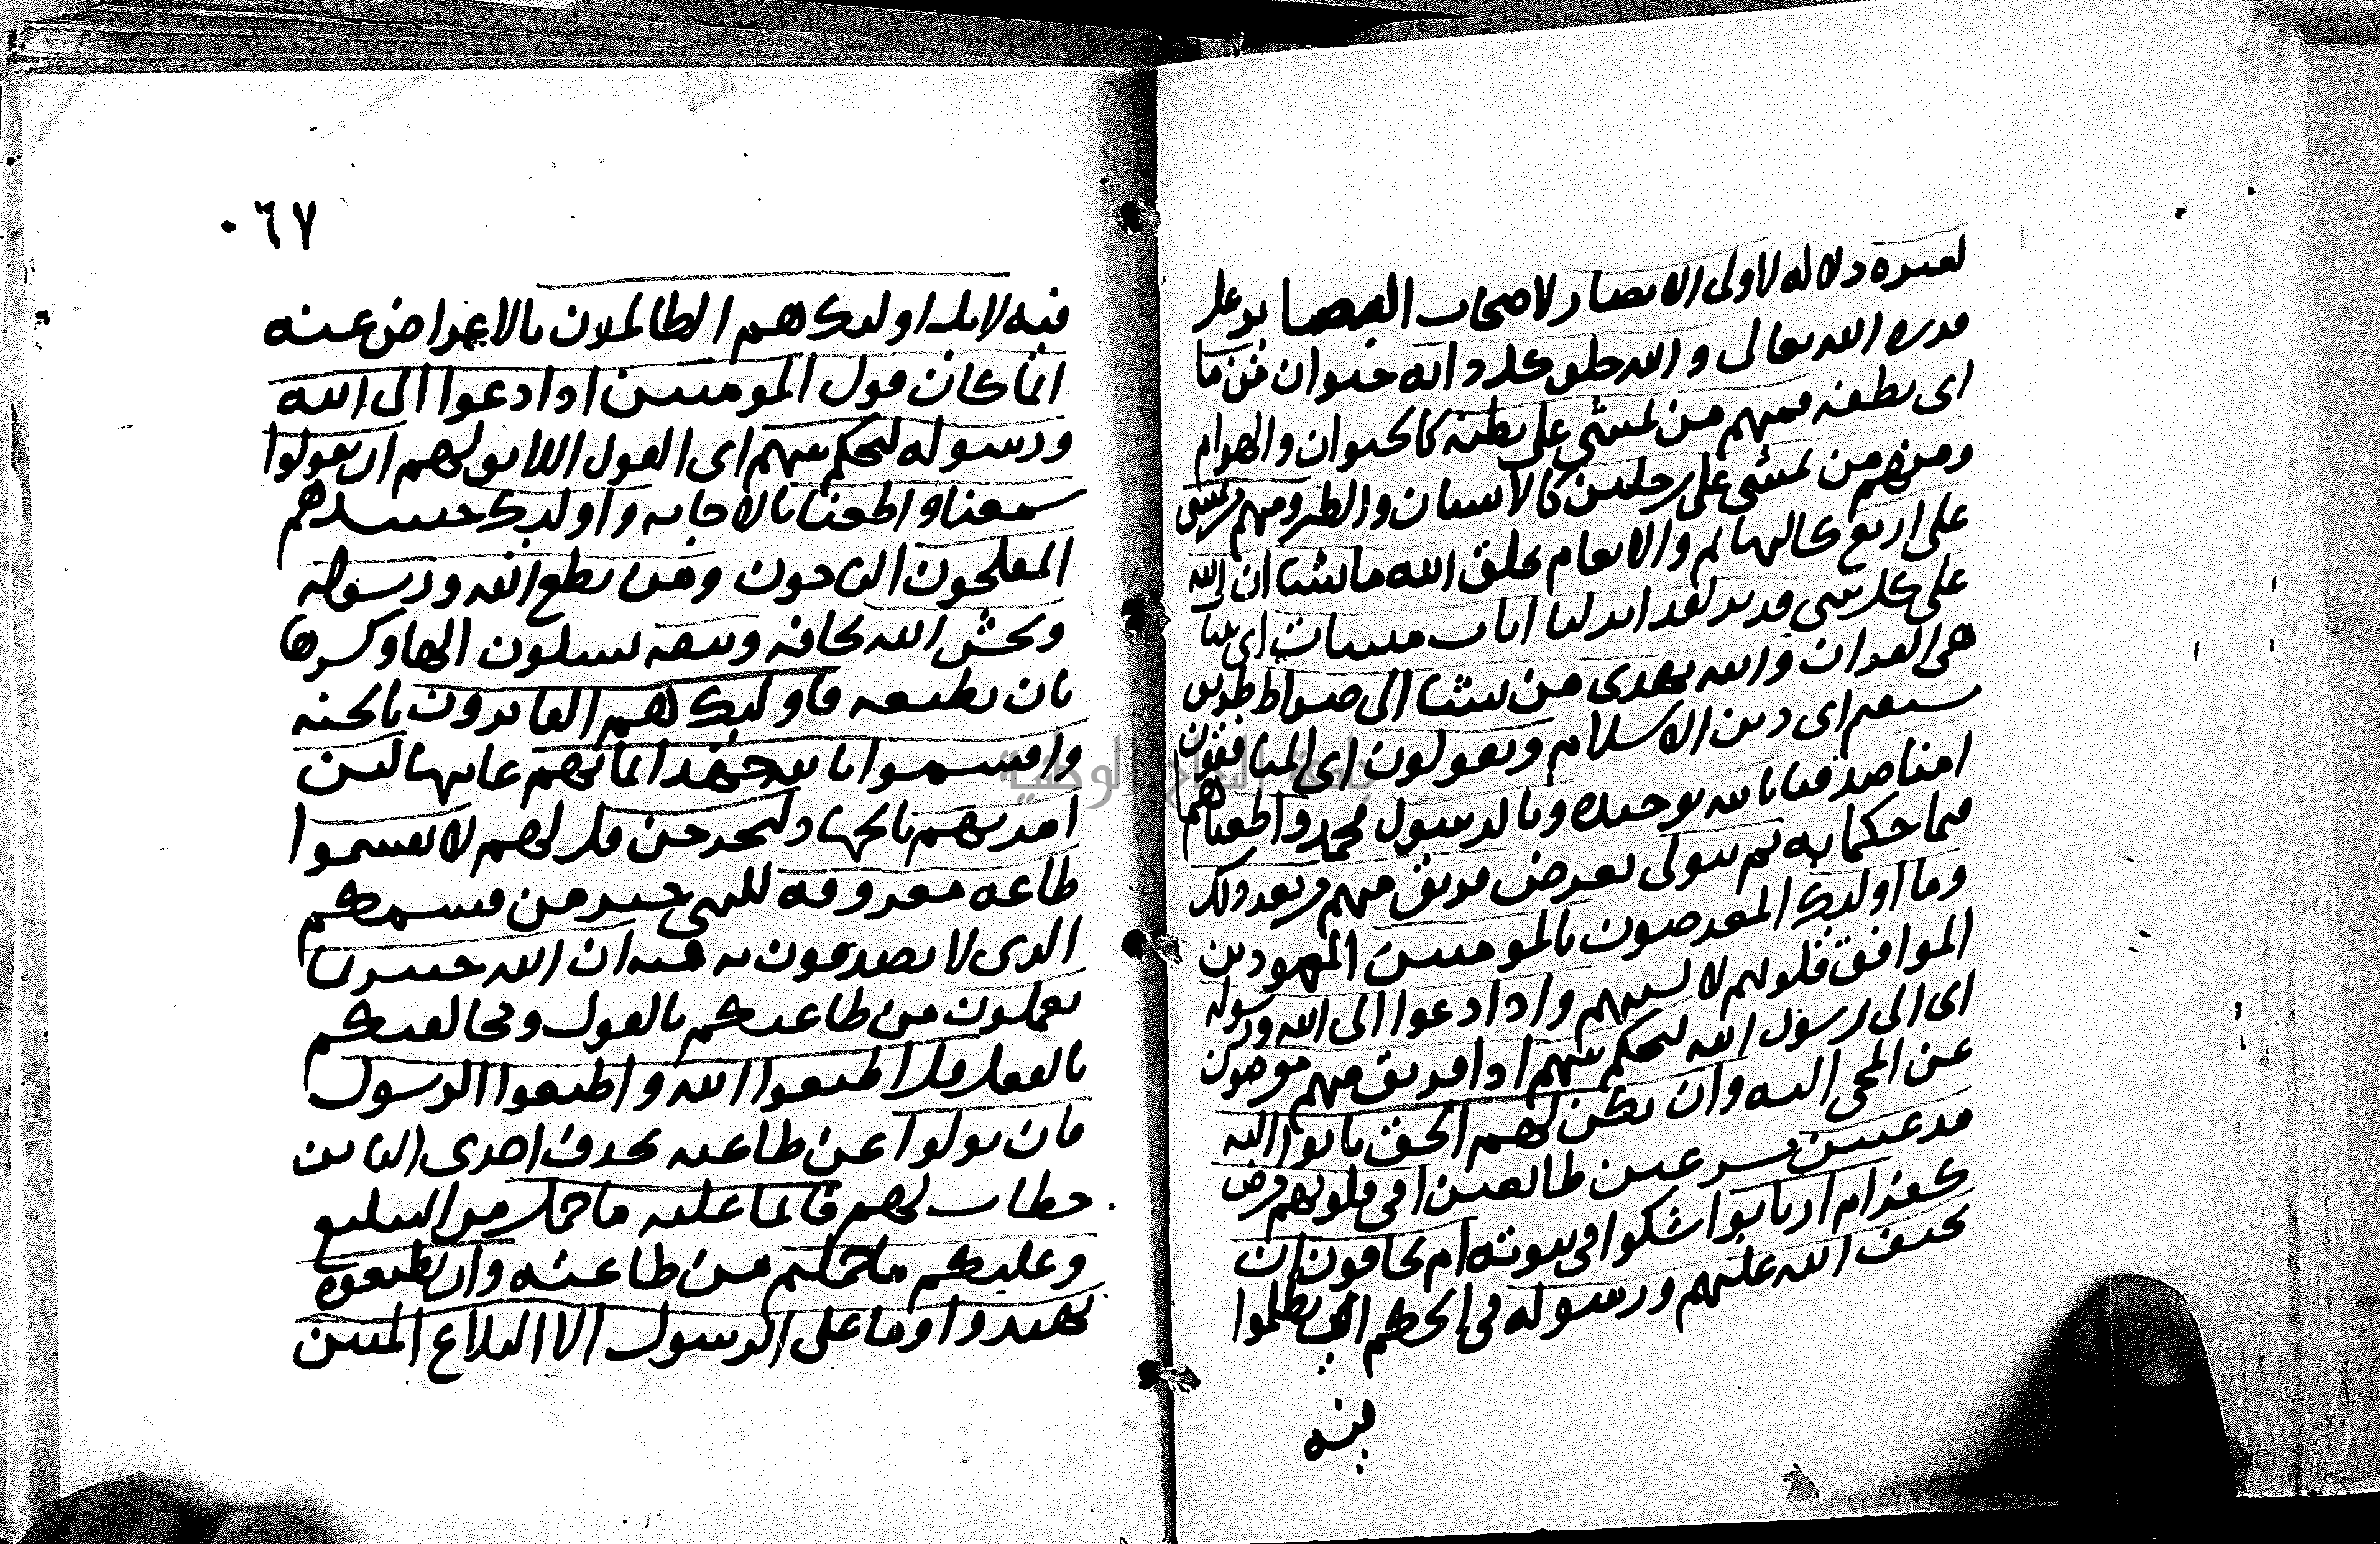 لعبرة دلالة لاولى الابصار لاصحاب البصاير على
قدرة الله تعالى والله خلق كل دابة حيوان من ما
اى نطفة فمنهم من يمشى على بطنه كالحيوان والهوام
ومنهم من يمشى على رجلين كالانسان والطير ومنهم من يمشى
على اربع كالبهايم والانعام يخلق الله ما يشا ان الله
على كل شى قدير لقد انزلنا ايات مبينات اى بينا
هى القران والله يهدى من يشا الى صراط طريق
مستقيم اى دين الاسلام ويقولون اى المنافقون
امنا صدقنا بالله بتوحيده وبالرسول محمد واطعنا هما
فيما حكما به ثم يتولى يعرض فريق منهم من بعد ذلك
وما اوليك المعرضون بالمومنين المعهودين
الموافق قلوبهم لالسنتهم واذا دعوا الى الله ورسوله
اى الى رسول الله ليحكم بينهم اذا فريق منهم معرضون
عن المجى اليه وان يكن لهم الحق ياتوا اليه
مذعنين مسرعين طايعين افى قلوبهم مرض
كفر ام ارتابوا شكوا فى نبوته ام يخافون ان
يحيف الله عليهم ورسوله فى الحكم اى يظلموا
فيه
٠٦٧
فيه لا بل اوليك هم الظالمون بالاعراض عنه
انما كان قول المومنين اذا دعوا الى الله
ورسوله ليحكم بينهم اى القول اللايق لهم ان يقولوا
سمعنا واطعنا بالاجابة واوليك حينيذ هم
المفلحون الناجون ومن يطع الله ورسوله
ويخش الله يخافه ويتقه بسكون الها وكسرها
بان يطيعه فاوليك هم الفايزون بالجنة
واقسموا بالله جهد ايمانهم غايتها لين
امرتهم بالجهاد ليخرجن قل لهم لا تقسموا
طاعة معروفة للنبى خير من قسمكم
الذى لا تصدقون به فيه ان الله خبير بما
تعملون من طاعتكم بالقول ومخالفتكم
بالفعل قل اطيعوا الله واطيعوا الرسول
فان تولوا عن طاعته بحذف احدى التاين
خطاب لهم فانما عليه ما حمل من التبليغ
وعليكم ما حملتم من طاعته وان تطيعوه
تهتدوا وما على الرسول الا البلاغ المبين